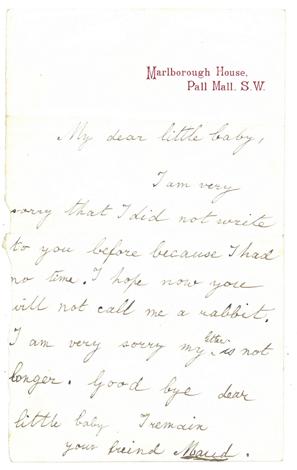 Marlborough House,
Pall Mall. S.W.
My dear little baby,
I am very
sorry that I did not write
to you before because I had
no time. I hope now you
will not call me a rabbit.
I am very sorry my letter is not
longer. Good bye dear
little baby I remain
your freind Maud.